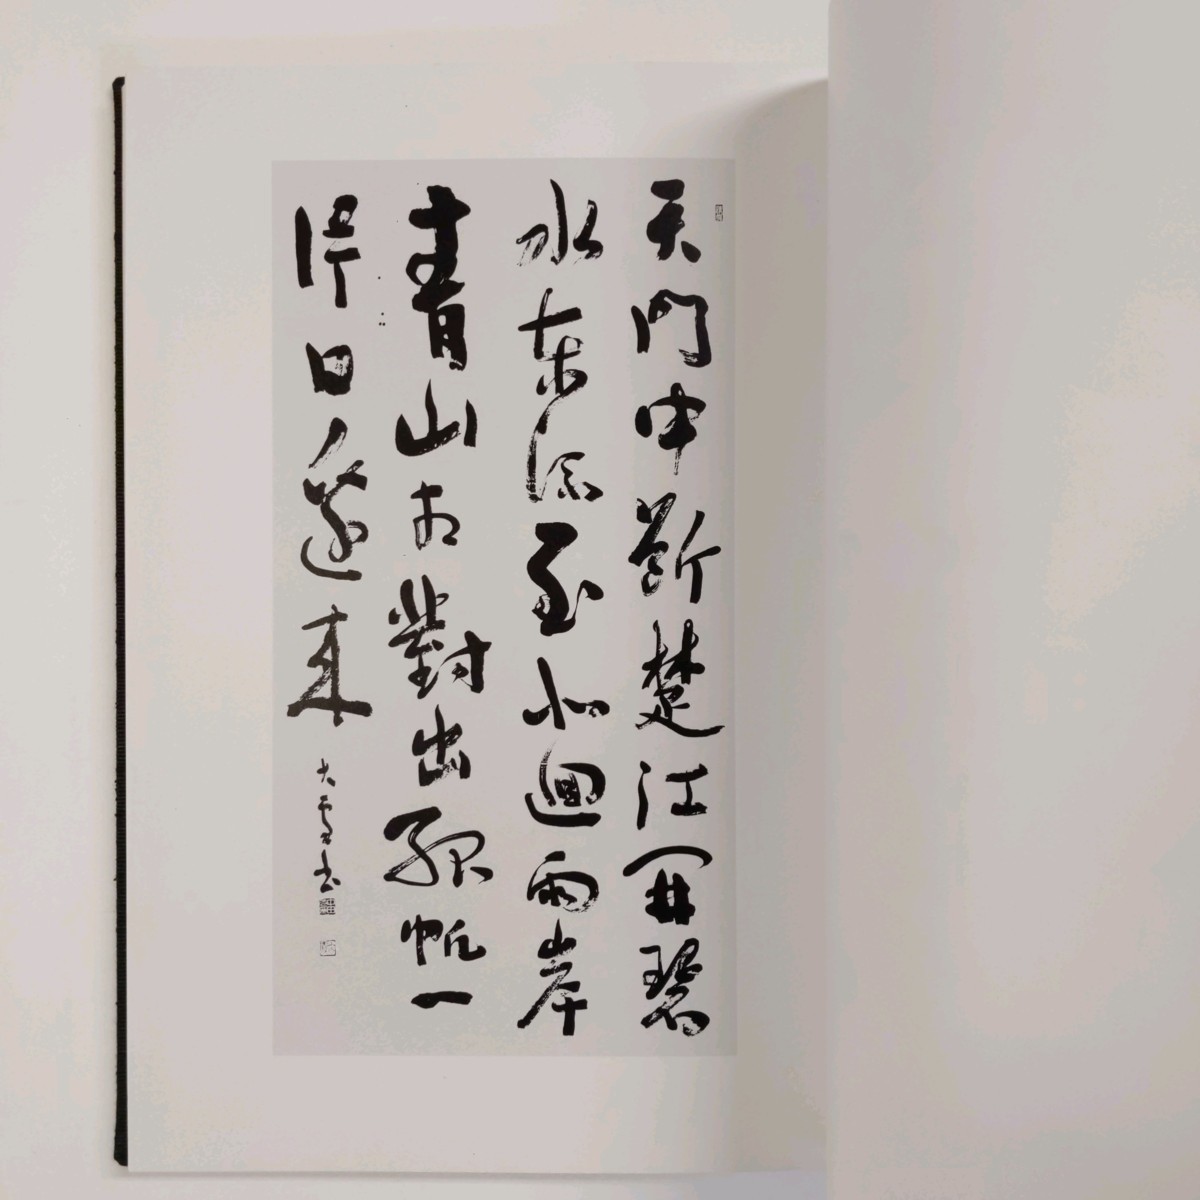 天門中斷楚江開碧
水東流至北迴兩岸
青山相對出孤帆一
片日邊來
大雪書